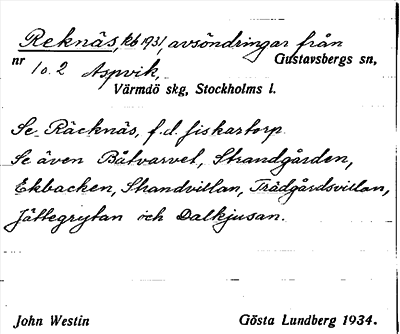 Reknäs, kb 1931, avsöndringar från
nr 1 o. 2 Aspvik, Gustavsbergs sn,
Värmdö skg, Stockholms l.
Se Räcknäs, f.d. fiskartorp
Se även Båtvarvet, Strandgården,
Ekbacken, Strandvillan, Trädgårdsvillan,
Jättegrytan och Dalkjusan.
John Westin Gösta Lundberg 1934.